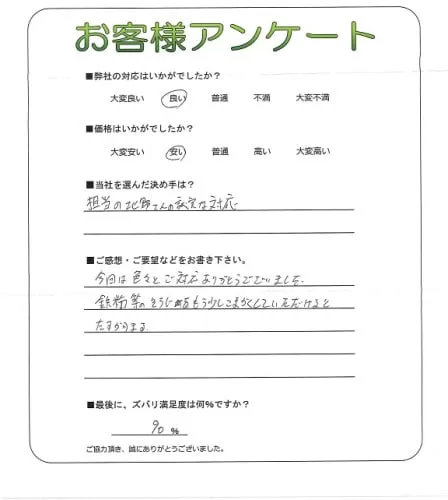 お客様アンケート
■弊社の対応はいかがでしたか？
大変良い 良い 普通 不満 大変不満
■価格はいかがでしたか？
大変安い 安い 普通 高い 大変高い
■当社を選んだ決め手は？
担当の さんの な対応
■ご感想・ご要望などをお書き下さい。
今回は色々とご対応ありがとうございました。
鉄粉等のそうじ もう少しこまかくしていただけると
たすかります
■最後に、ズバリ満足度は何%ですか？
90 %
ご協力頂き、誠にありがとうございました。